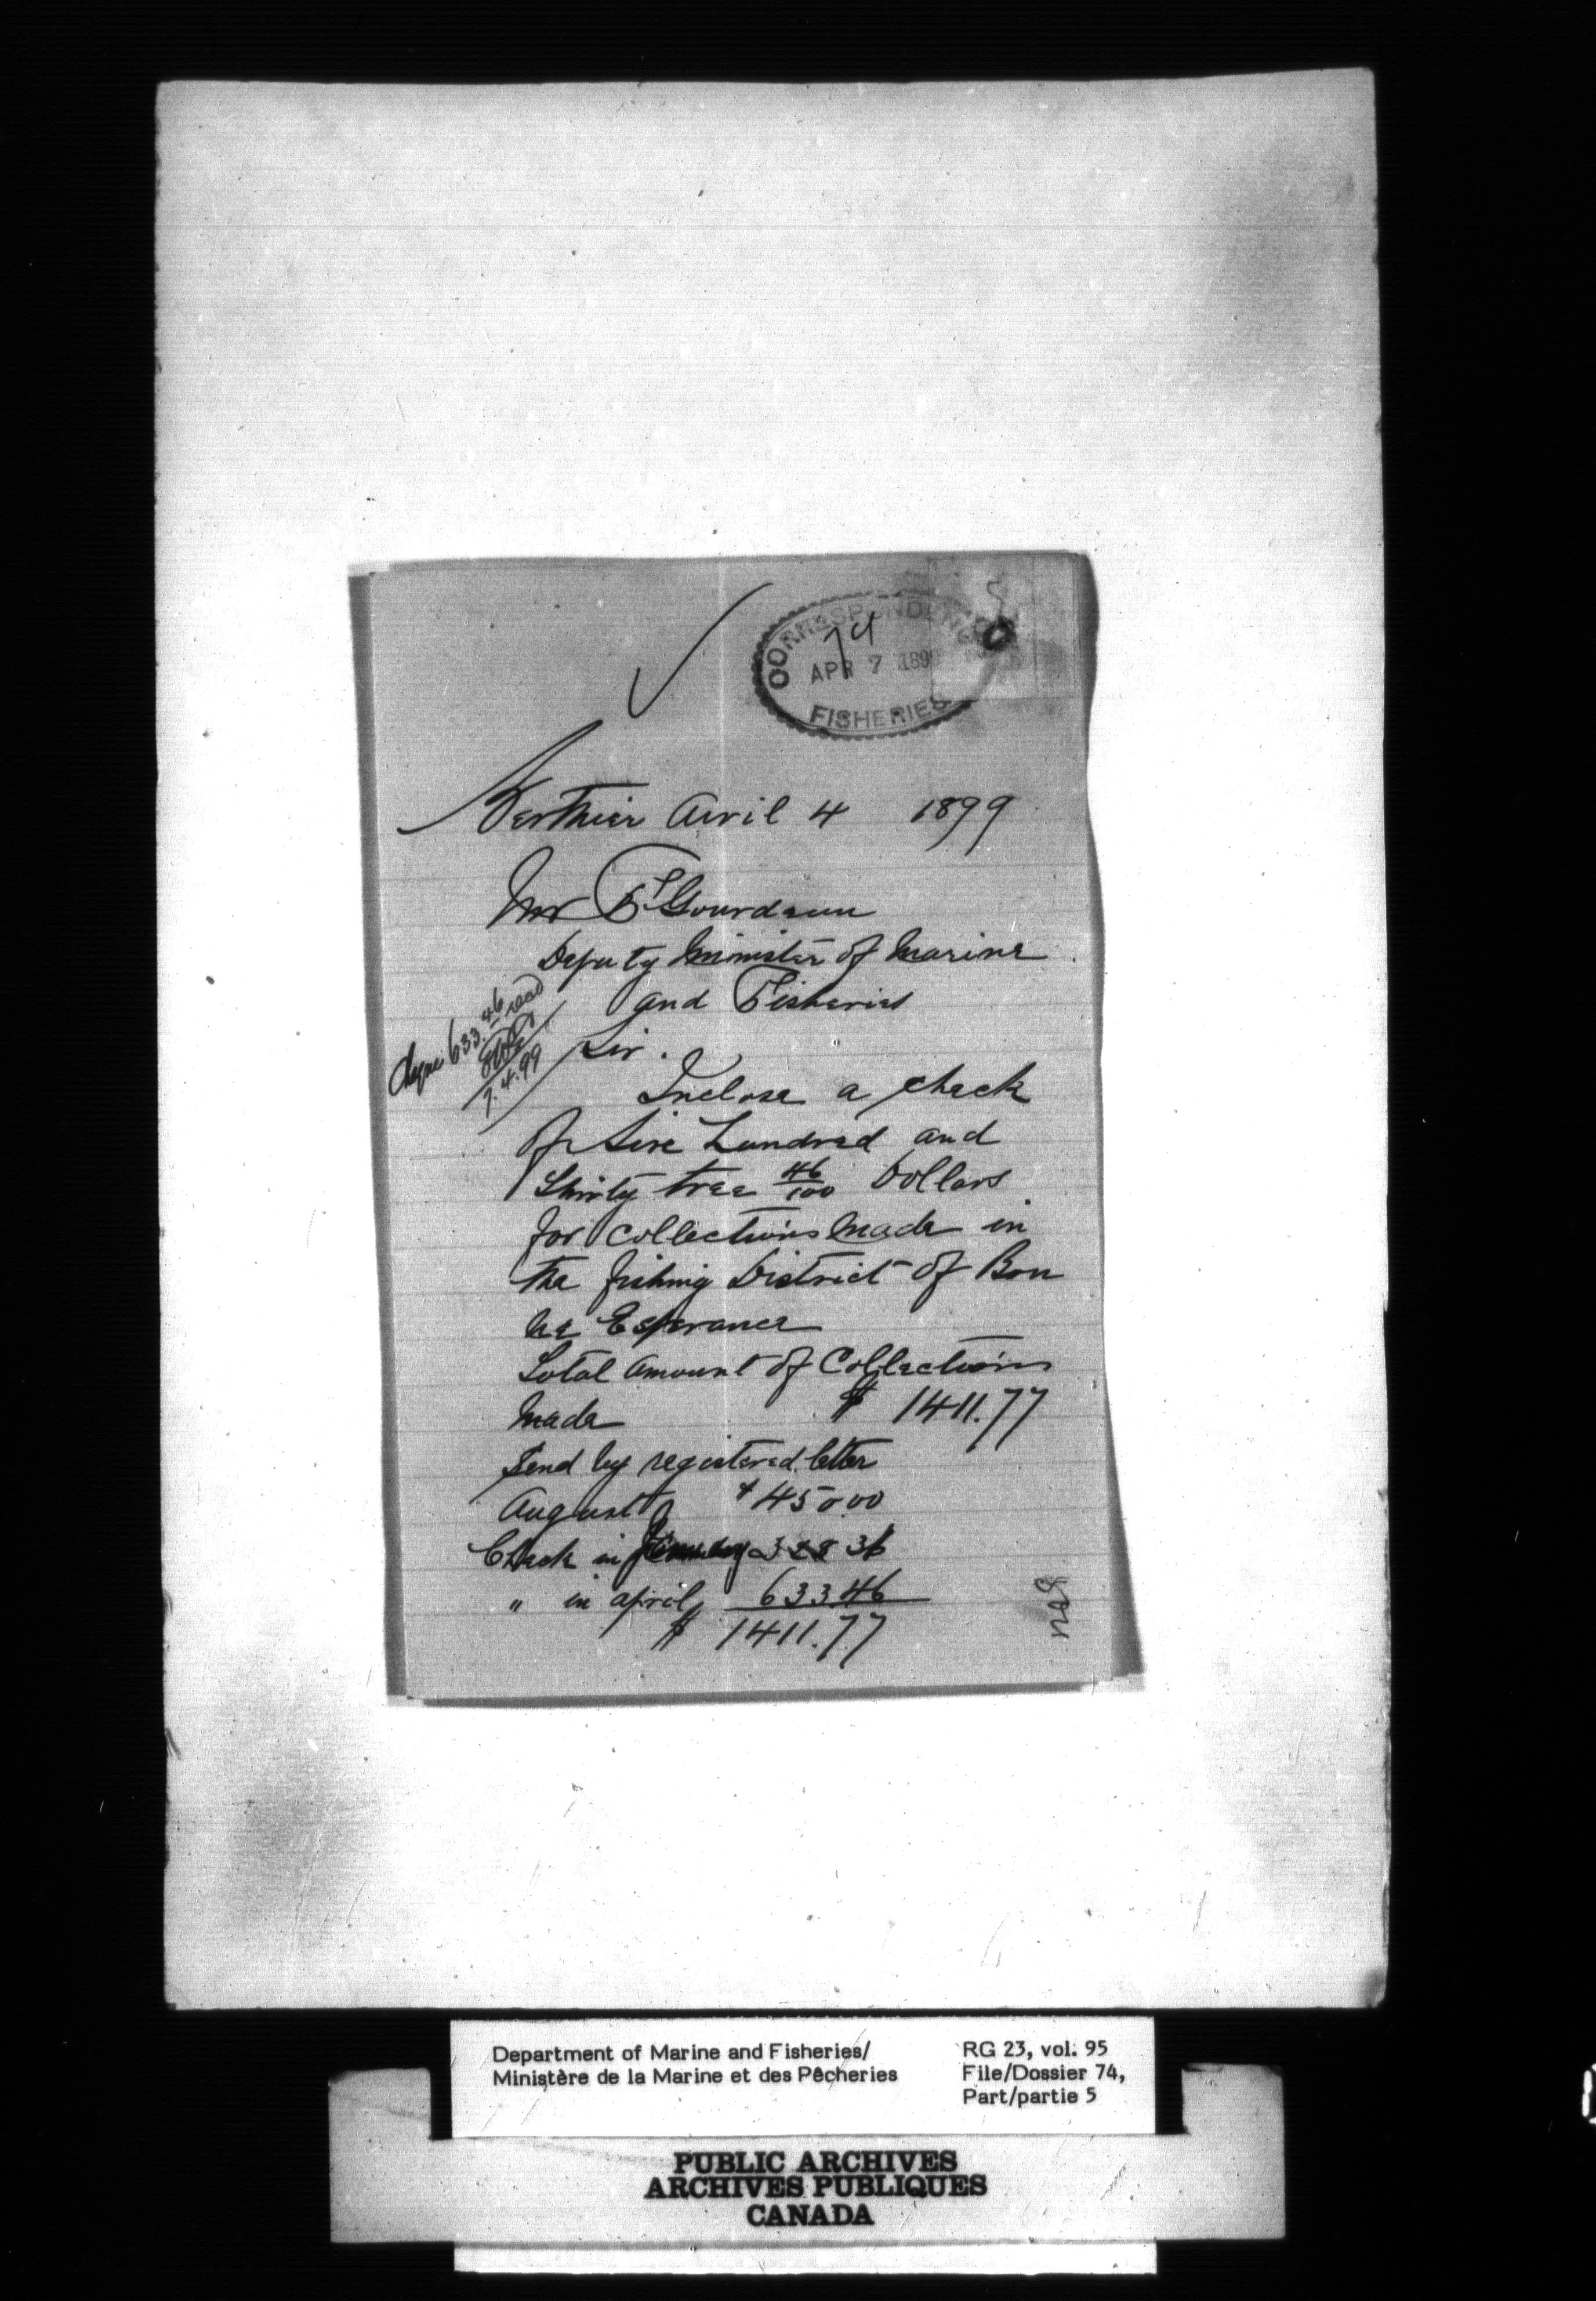 CORRESPONDENCE
74
APR 7 1899
FISHERIES
Berthier Avril 4 1899
Mr F Gourdeau
Deputy Minister of Marine
and Fisheries
Cheque 633.46 recd
7.4.99
Sir.
Inclose a check
of sixe hundred and
thirty tree 46/100 Dollars
for collections made in
the fishing District of Bon
ne Esperance
Total amount of Collections
made $ 1411.77
Send by registered letter
August $ 450.00
Check in January 328 31
" in april 633 46
$ 1411.77
Department of Marine and Fisheries/
Ministère de la Marine et des Pêcheries
RG 23, vol. 95
File/Dossier 74,
Part/partie 5
PUBLIC ARCHIVES
ARCHIVES PUBLIQUES
CANADA